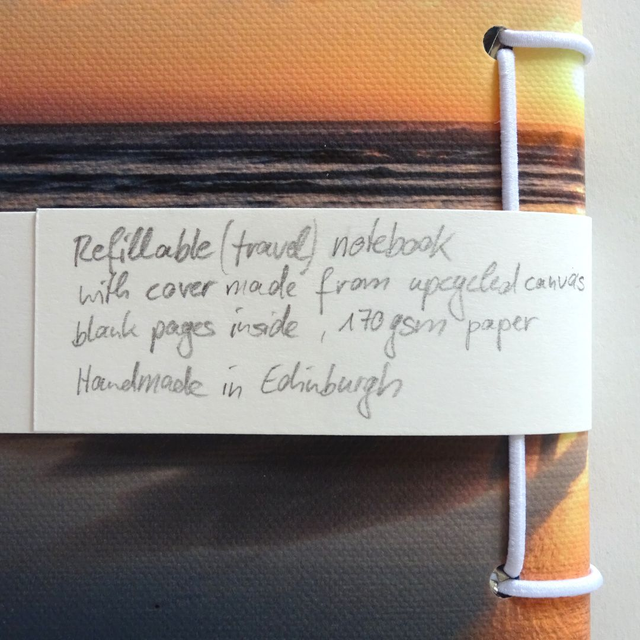 Refillable (travel) notebook
with cover made from upcycled canvas
blank pages inside, 170 gsm paper
Handmade in Edinburgh